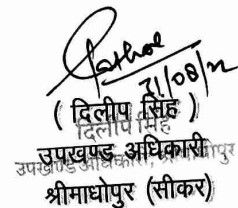 21/08/22
( दिलीप सिंह )
दिलीप सिंह
उपखण्ड अधिकारी
उपखण्ड अधिकारी, श्रीमाधोपुर
श्रीमाधोपुर (सीकर)